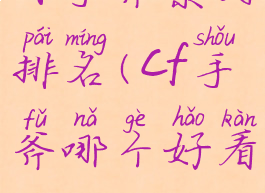 pái míng shǒu
排名(cf手
fǔ nǎ gè hǎo kàn
斧哪个好看